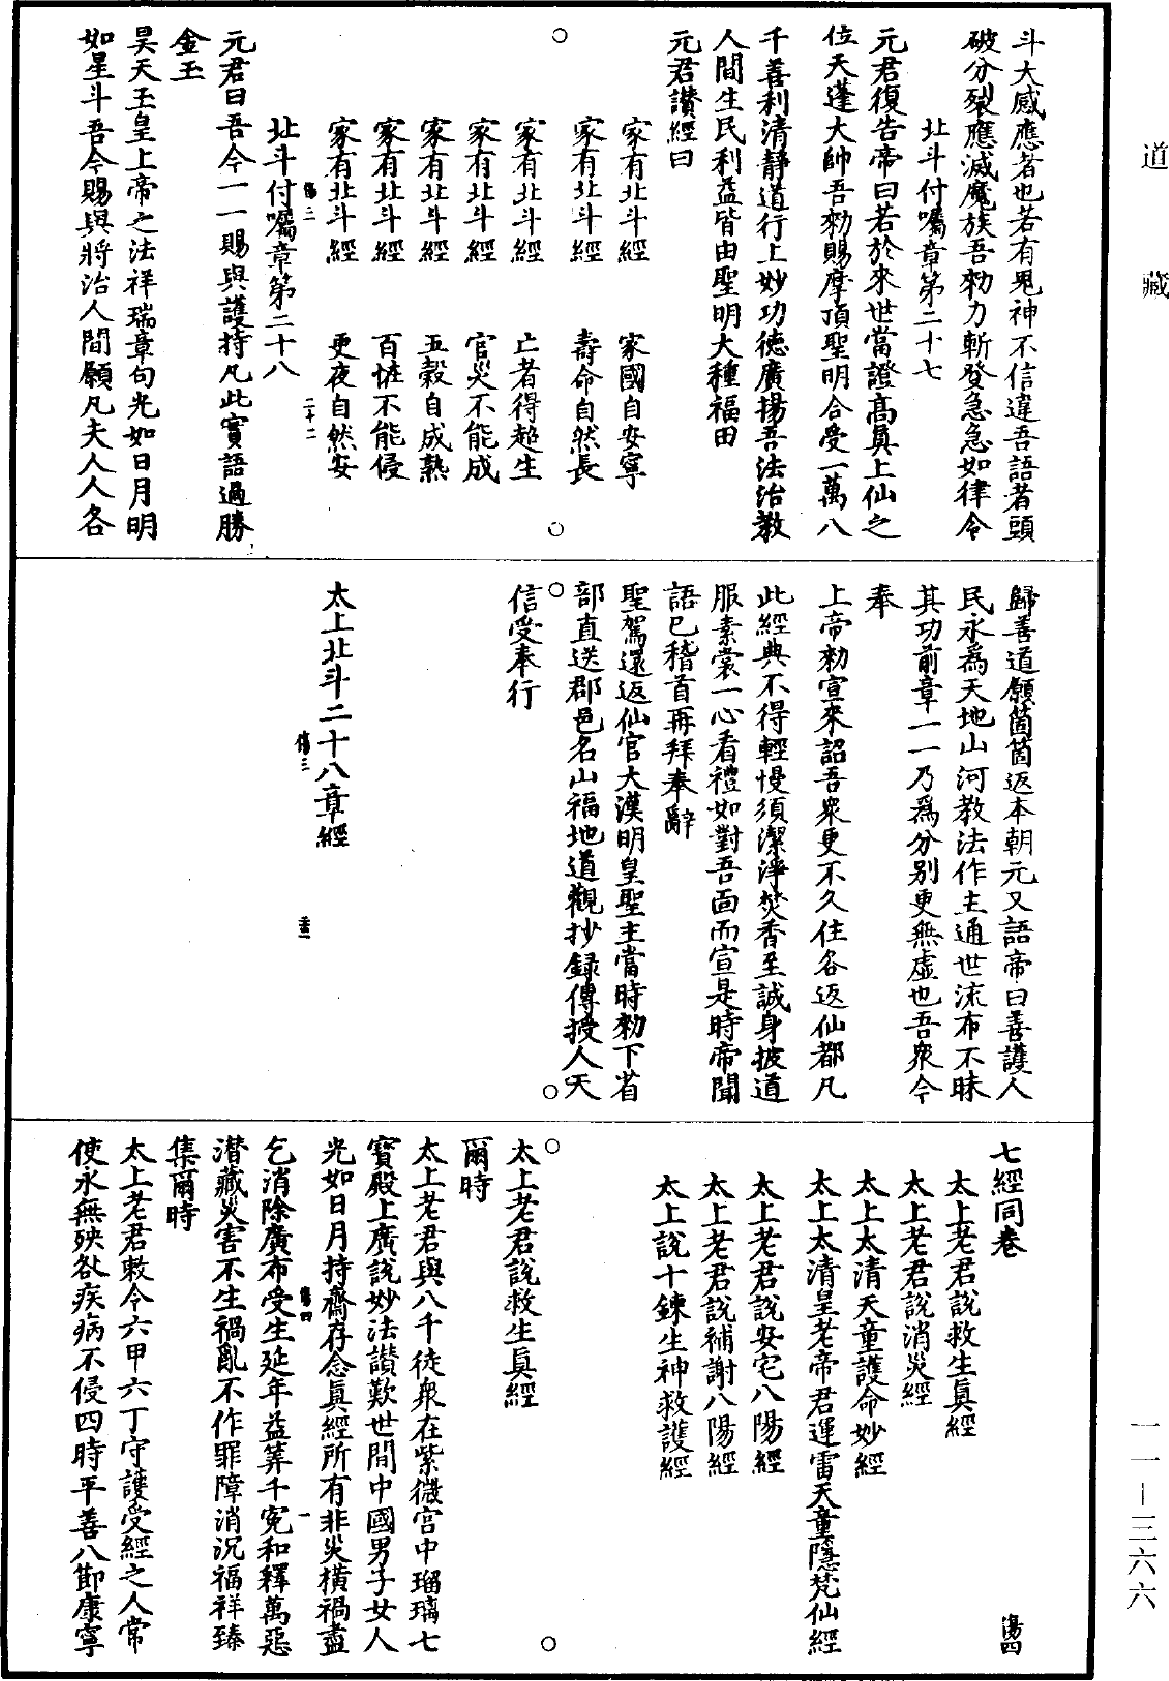 道藏
斗大感應者也若有鬼神不信違吾語者頭
破分裂應滅魔族吾勑力斬癹急急如律令
北斗付囑章第二十七
元君復告帝曰若於來世當證高真上仙之
位天蓬大帥吾勑賜摩頂聖明合受一萬八
千善利清靜道行上妙功德廣揚吾法治教
人間生民利益皆由聖明大種福田
元君讚經曰
家有北斗經　家國自安寧
家有北斗經　壽命自然長
家有北斗經　亡者得超生
家有北斗經　官災不能成
家有北斗經　五穀自成熟
家有北斗經　百怪不能侵
家有北斗經　更夜自然安
傷三　二十二
北斗付囑章第二十八
元君曰吾今一一賜與護持凡此實語過勝
金玉
昊天玉皇上帝之法祥瑞章句光如日月明
如星斗吾今賜與將治人間願凡夫人人各
歸善道願箇箇返本朝元又語帝曰善護人
民永為天地山河教法作主通世流布不昧
其功前章一一乃為分別更無虛也吾眾今
奉
上帝勑宣來詔吾眾更不久住各返仙都凡
此經典不得輕慢須潔淨焚香至誠身披道
服素裳一心看禮如對吾面而宣是時帝聞
語已稽首再拜奉辭
聖駕還返仙官大漢明皇聖主當時勑下省
部直送郡邑名山福地道觀抄録傳授人天
信受奉行
太上北斗二十八章經
傷三
七經同卷　傷四
太上老君說救生真經
太上老君說消災經
太上太清天童護命妙經
太上太清皇老帝君運雷天童隱梵仙經
太上老君說安宅八陽經
太上老君說補謝八陽經
太上說十鍊生神救護經
太上老君說救生真經
爾時
太上老君與八千徒衆在紫微宮中瑠璃七
寶殿上廣說妙法讃歎世間中國男子女人
光如日月持齋存念真經所有非災橫禍盡
傷四　一
乞消除廣布受生延年益筭千寃和釋萬惡
潜藏災害不生禍亂不作罪障消況福祥臻
集爾時
太上老君敕令六甲六丁守護受經之人常
使永無殃咎疾病不侵四時平善八節康寧
一一—三六六